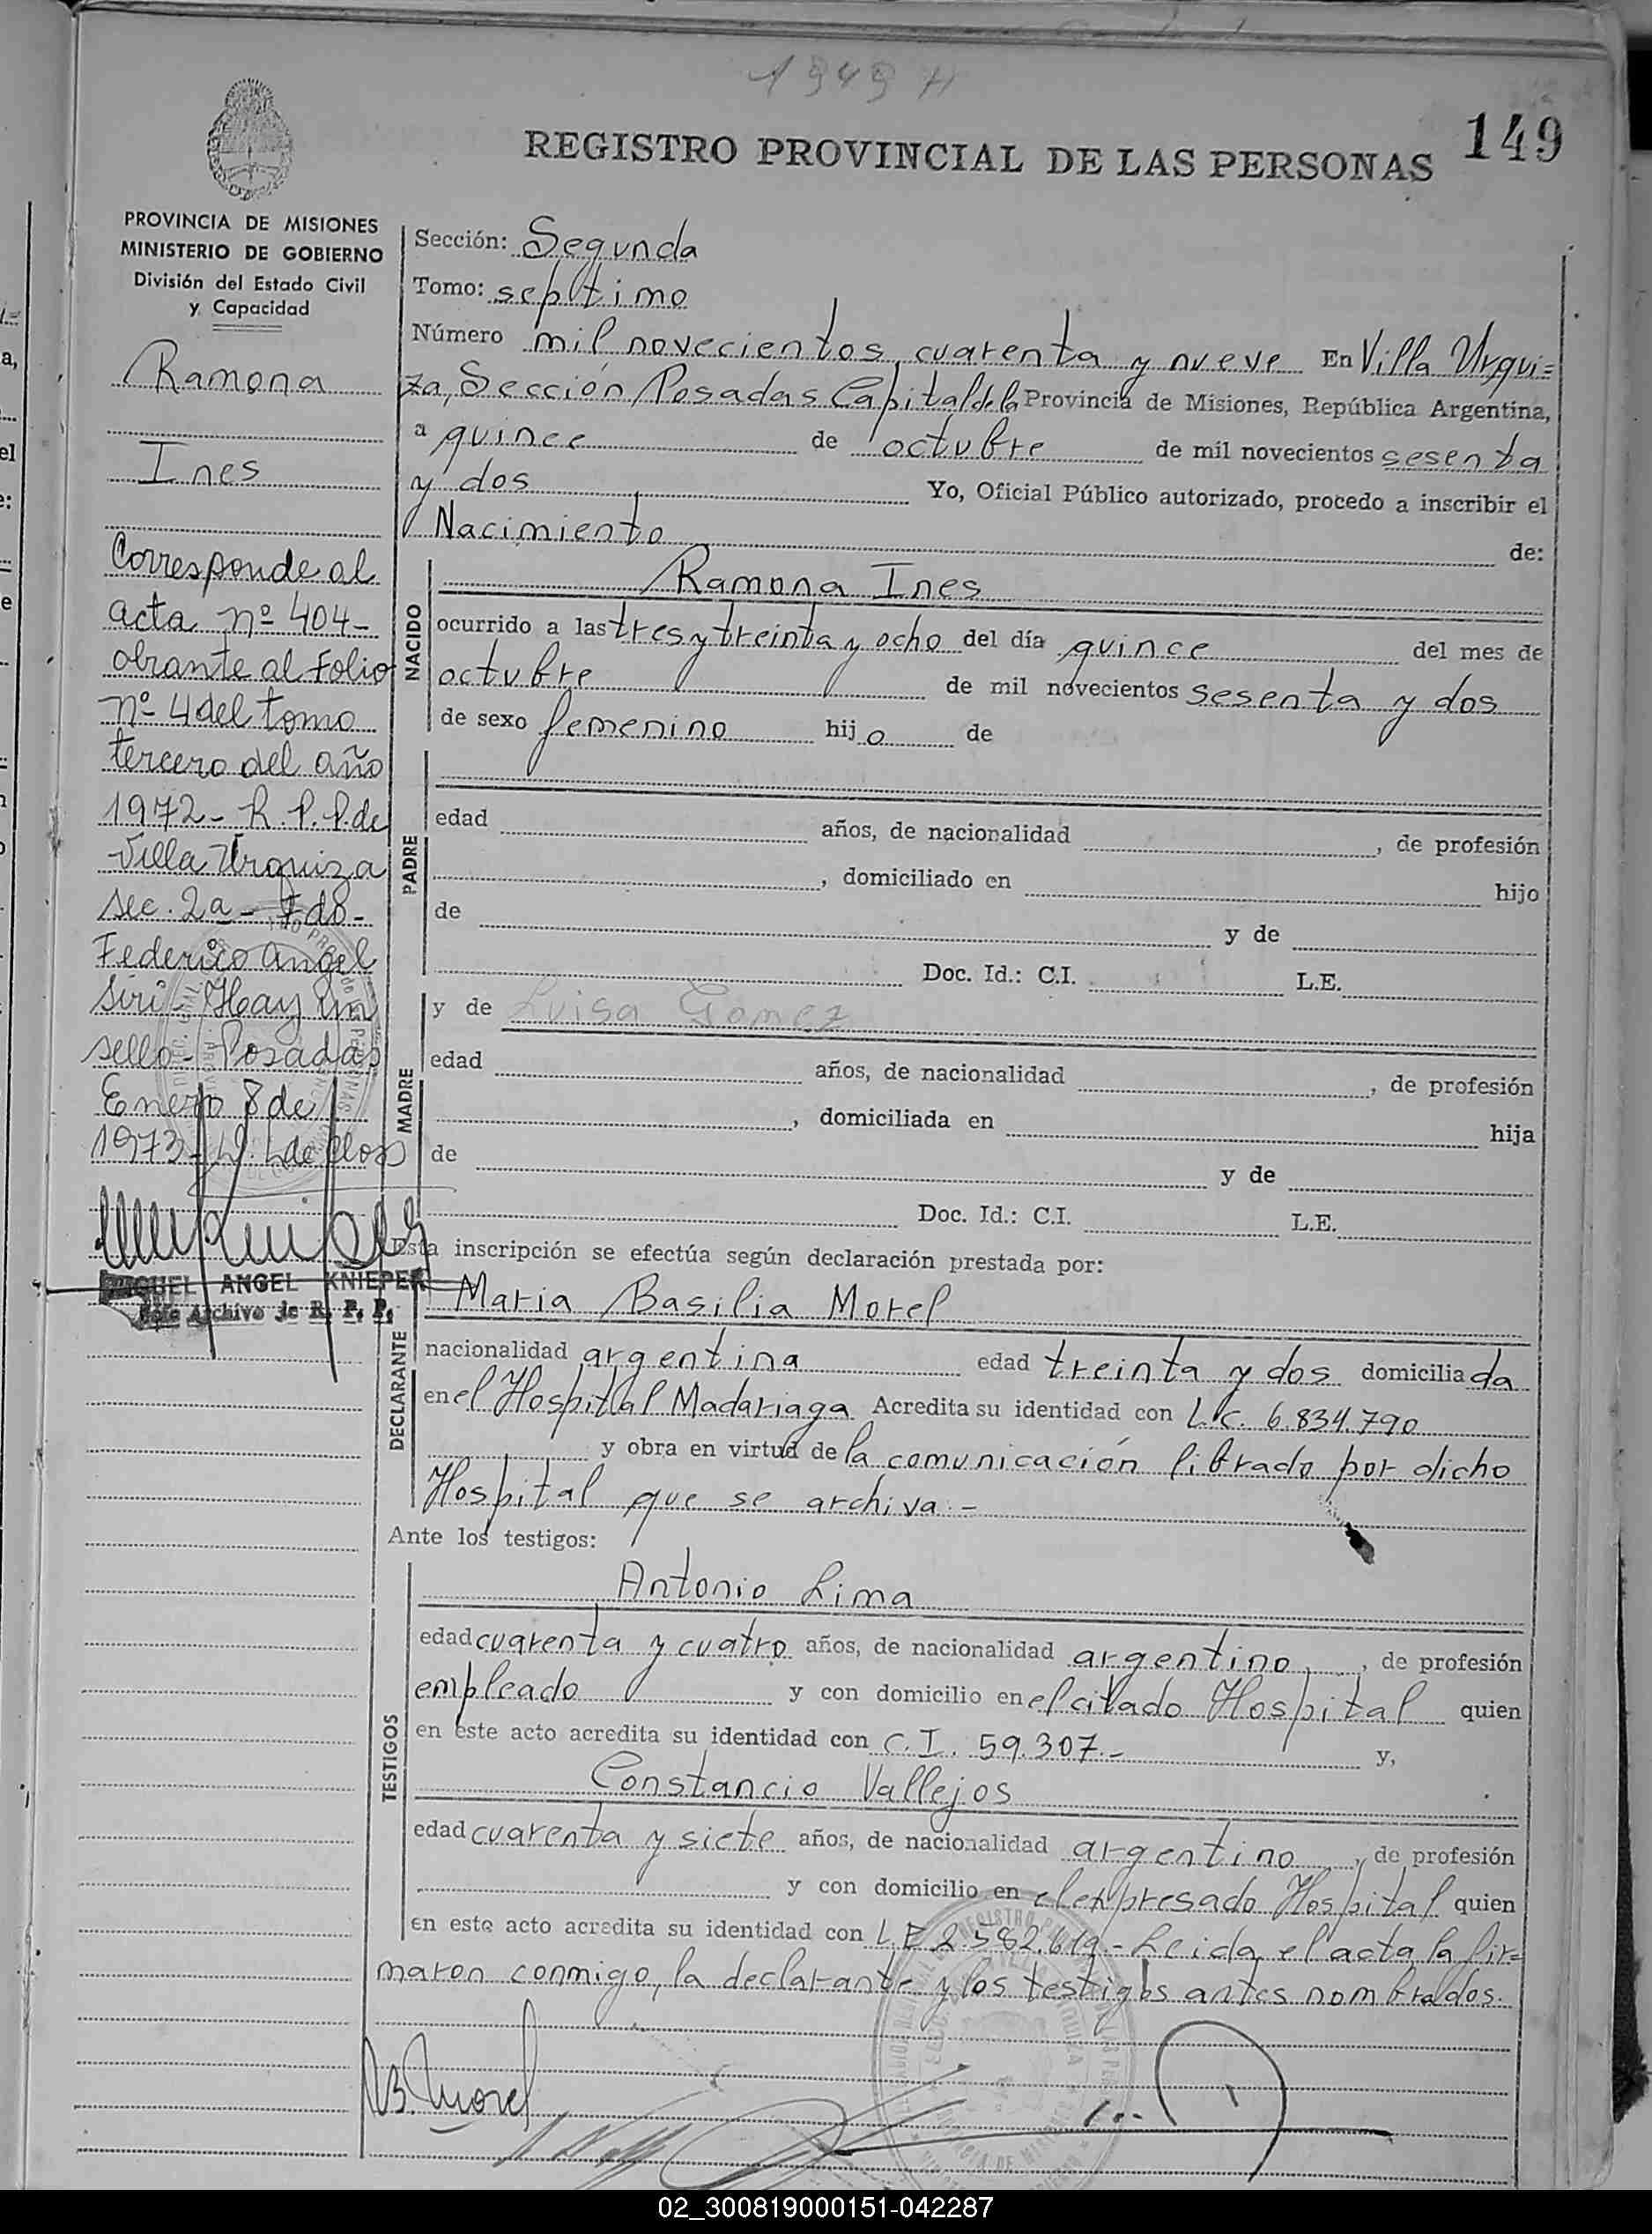 1949 H
149
REGISTRO PROVINCIAL DE LAS PERSONAS
PROVINCIA DE MISIONES
MINISTERIO DE GOBIERNO
División del Estado Civil
y Capacidad
Ramona
Ines
Corresponde al
acta nº 404-
obrante al Folio
nº 4 del tomo
tercero del año
1972- R. P. P. de
Villa Urquiza
sec. 2a-
Federico Angel
Siri- Hay un
sello- Posadas
Enero 8 de
1973-
MIGUEL ANGEL KNIEPER
Jefe Archivo de R. P. P.
Sección: Segunda
Tomo: septimo
Número mil novecientos cuarenta y nueve En Villa Urqui=
za, Sección Posadas Capital de la Provincia de Misiones, República Argentina,
a quince de octubre de mil novecientos sesenta
y dos Yo, Oficial Público autorizado, procedo a inscribir el
Nacimiento de:
NACIDO
Ramona Ines
ocurrido a las tres y treinta y ocho del día quince del mes de
octubre de mil novecientos sesenta y dos
de sexo femenino hijo de
PADRE
edad años, de nacionalidad , de profesión
, domiciliado en hijo
de y de
Doc. Id.: C.I. L.E.
MADRE
y de Luisa Gomez
edad años, de nacionalidad , de profesión
, domiciliada en hija
de y de
Doc. Id.: C.I. L.E.
Esta inscripción se efectúa según declaración prestada por:
DECLARANTE
Maria Basilia Morel
nacionalidad argentina edad treinta y dos domiciliada
en el Hospital Madariaga Acredita su identidad con L.C. 6.834.790
y obra en virtud de la comunicación librado por dicho
Hospital que se archiva.-
Ante los testigos:
TESTIGOS
Antonio Lima
edad cuarenta y cuatro años, de nacionalidad argentino, de profesión
empleado y con domicilio en el citado Hospital quien
en este acto acredita su identidad con C.I. 59.307.- y,
Constancio Vallejos
edad cuarenta y siete años, de nacionalidad argentino, de profesión
y con domicilio en el expresado Hospital quien
en este acto acredita su identidad con L.E 2.582.619- Leida el acta la fir=
maron conmigo, la declarante y los testigos antes nombrados.
B. Morel
02_300819000151-042287